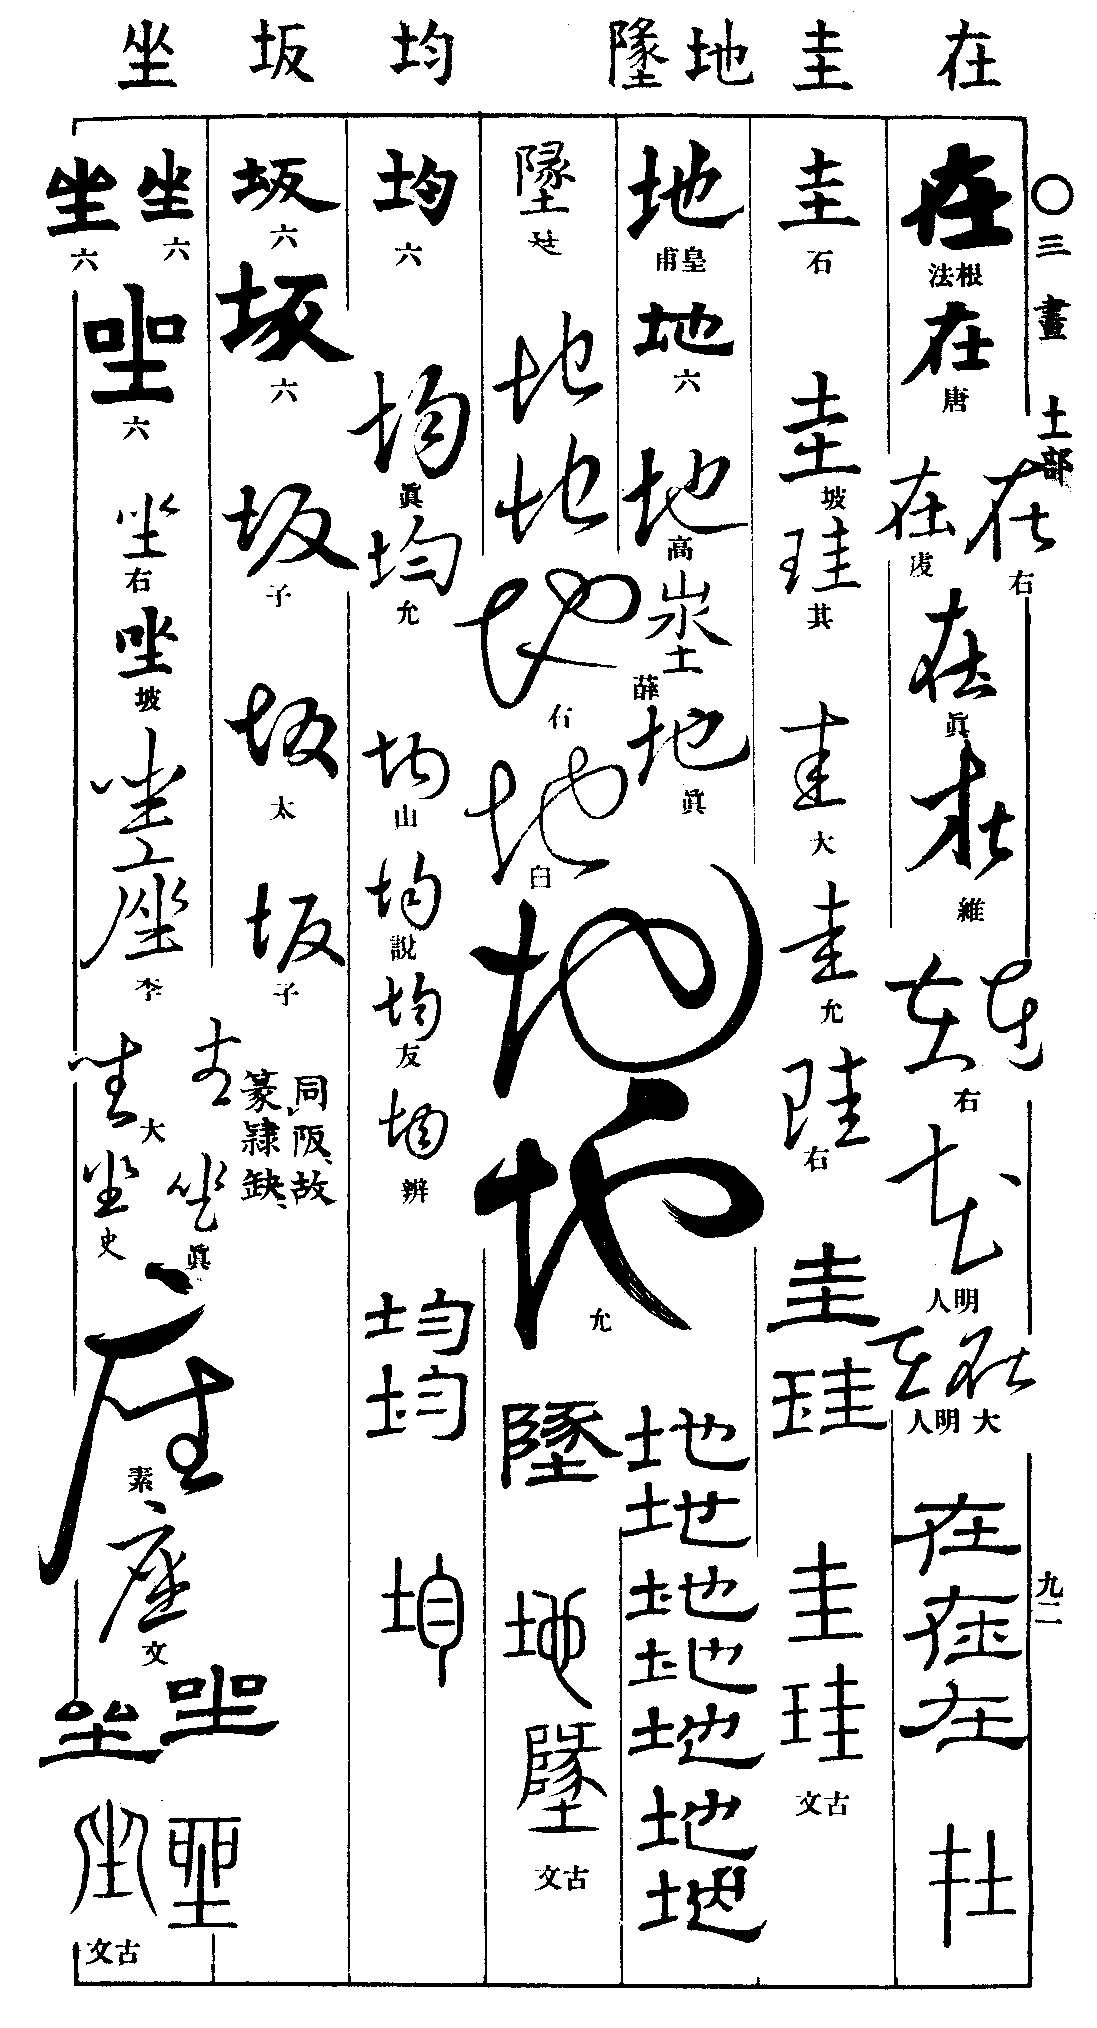 在 圭 地墬 均 坂 坐
〇三畫 土部
九二
在 根法
在 唐
在在 右
在 眞
在 維
在在 右
在 明人
在在 大 明人
在
在
在
在
圭 石
圭 坡
珪 其
圭 大
圭 允
陸 右
圭
珪
圭
珪 古文
地 皇甫
地 六
地 高
埊 薛
地 眞
地
地
地
地
地
地
地
墬
地
地
地 石
地
地
地 允
墬
地
墬 古文
均 六
均 眞
均 允
均 山
均 說
均 友
均 辨
均
均
均
坂 六
坂 六
坂 子
坂 太
坂 子
同阪、故
篆隷缺、
坐 六
坐 六
坐 六
坐 右
坐 坡
坐
座 李
坐 大
坐 眞
坐 史
座 素
座 文
坐
坐
坐
坐 古文